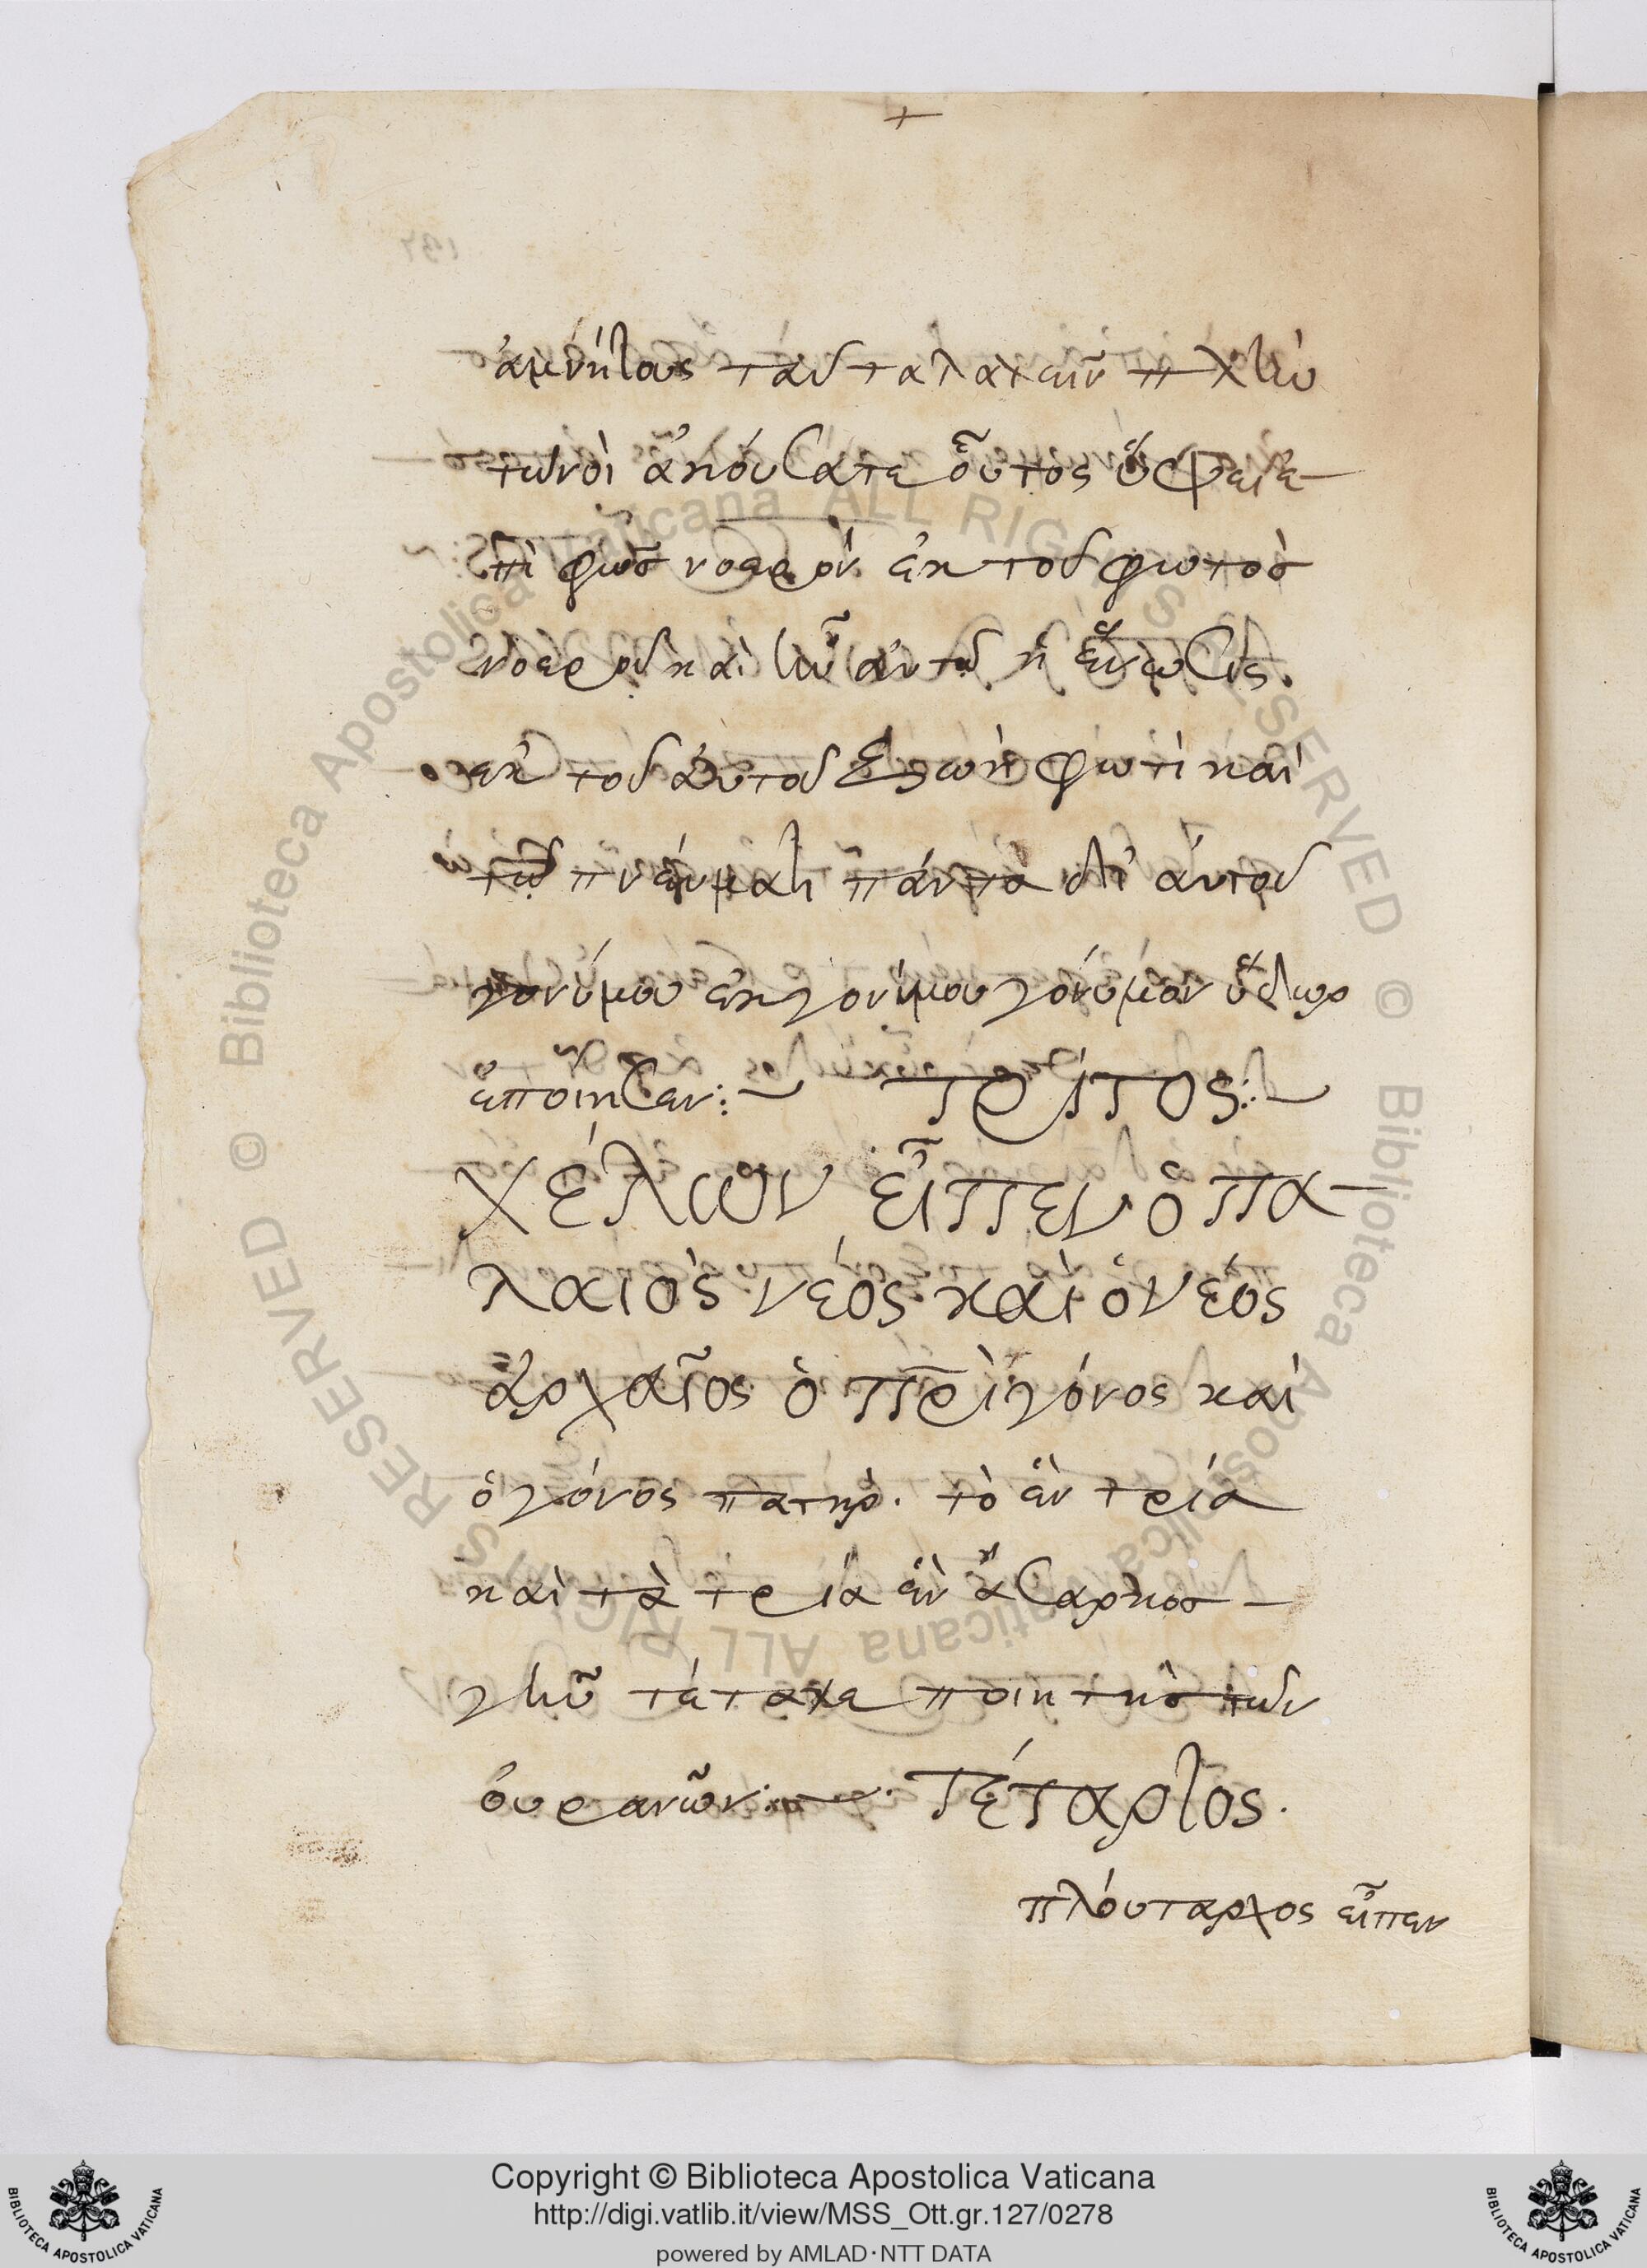 +
ἀμυήτους ταῦτα λαχεῖν π
τωνοὶ ἀκούσατε οὗτος ὕψει ἐ-
πὶ φῶς νοερὸν ἐκ τοῦ φωτὸς
νοεροῦ καὶ ἦν αὐτοῦ ἡ ἕνωσις.
ἐκ τοῦ αὐτοῦ ζωὴ φωτὶ καὶ
τῶ πνεύματι πάντα δι' αὐτοῦ
γονύμου ἐκ γονήμου γόνυμον ὕδωρ
ἐποίησεν:~ τρίτος:~
χέλων εἶπεν ὁ πα-
λαιὸς νέος καὶ ὁ νέος
ἀρχαῖος ὁ π̅ρ̅ὶ γόνος καὶ
ὁ γόνος πατηρ. τὸ ἓν τρία
καὶ τὰ τρία ἓν ἄσαρκος -
γῆν τέτοχε ποιητὴς τῶν
οὐρανῶν:~ τέταρτος.
πλόυταρχος εἶπεν
Copyright © Biblioteca Apostolica Vaticana
http://digi.vatlib.it/view/MSS_Ott.gr.127/0278
powered by AMLAD·NTT DATA
BIBLIOTECA APOSTOLICA VATICANA
BIBLIOTECA APOSTOLICA VATICANA
© Biblioteca Apostolica Vaticana ALL RIGHTS RESERVED
© Biblioteca Apostolica Vaticana ALL RIGHTS RESERVED